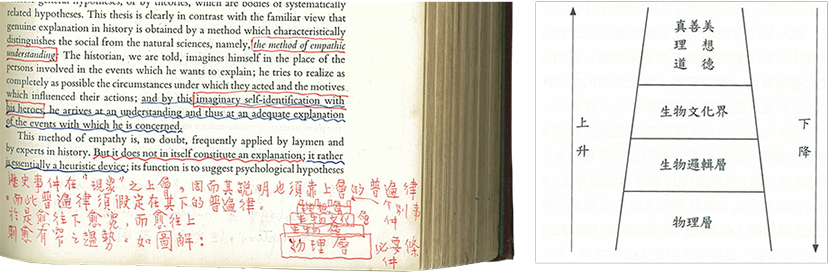 more general hypotheses, or by theories, which are bodies of systematically
related hypotheses. This thesis is clearly in contrast with the familiar view that
genuine explanation in history is obtained by a method which characteristically
distinguishes the social from the natural sciences, namely, the method of empathic
understanding. The historian, we are told, imagines himself in the place of the
persons involved in the events which he wants to explain; he tries to realize as
completely as possible the circumstances under which they acted and the motives
which influenced their actions; and by this imaginary self-identification with
his heroes, he arrives at an understanding and thus at an adequate explanation
of the events with which he is concerned.
This method of empathy is, no doubt, frequently applied by laymen and
by experts in history. But it does not in itself constitute an explanation; it rather
is essentially a heuristic device; its function is to suggest psychological hypotheses
歷史事件在“現象”之上層,因而其說明也須靠上層的普遍律
。而此普遍律須假定在其下的普遍律。
於是愈往下愈寬,而愈往上
則愈有窄之趨勢。如圖解:
個別事件
理想
生物文化層
生物層
物理層
必要條件
上升
真善美
理想
道德
生物文化界
生物邏輯層
物理層
下降